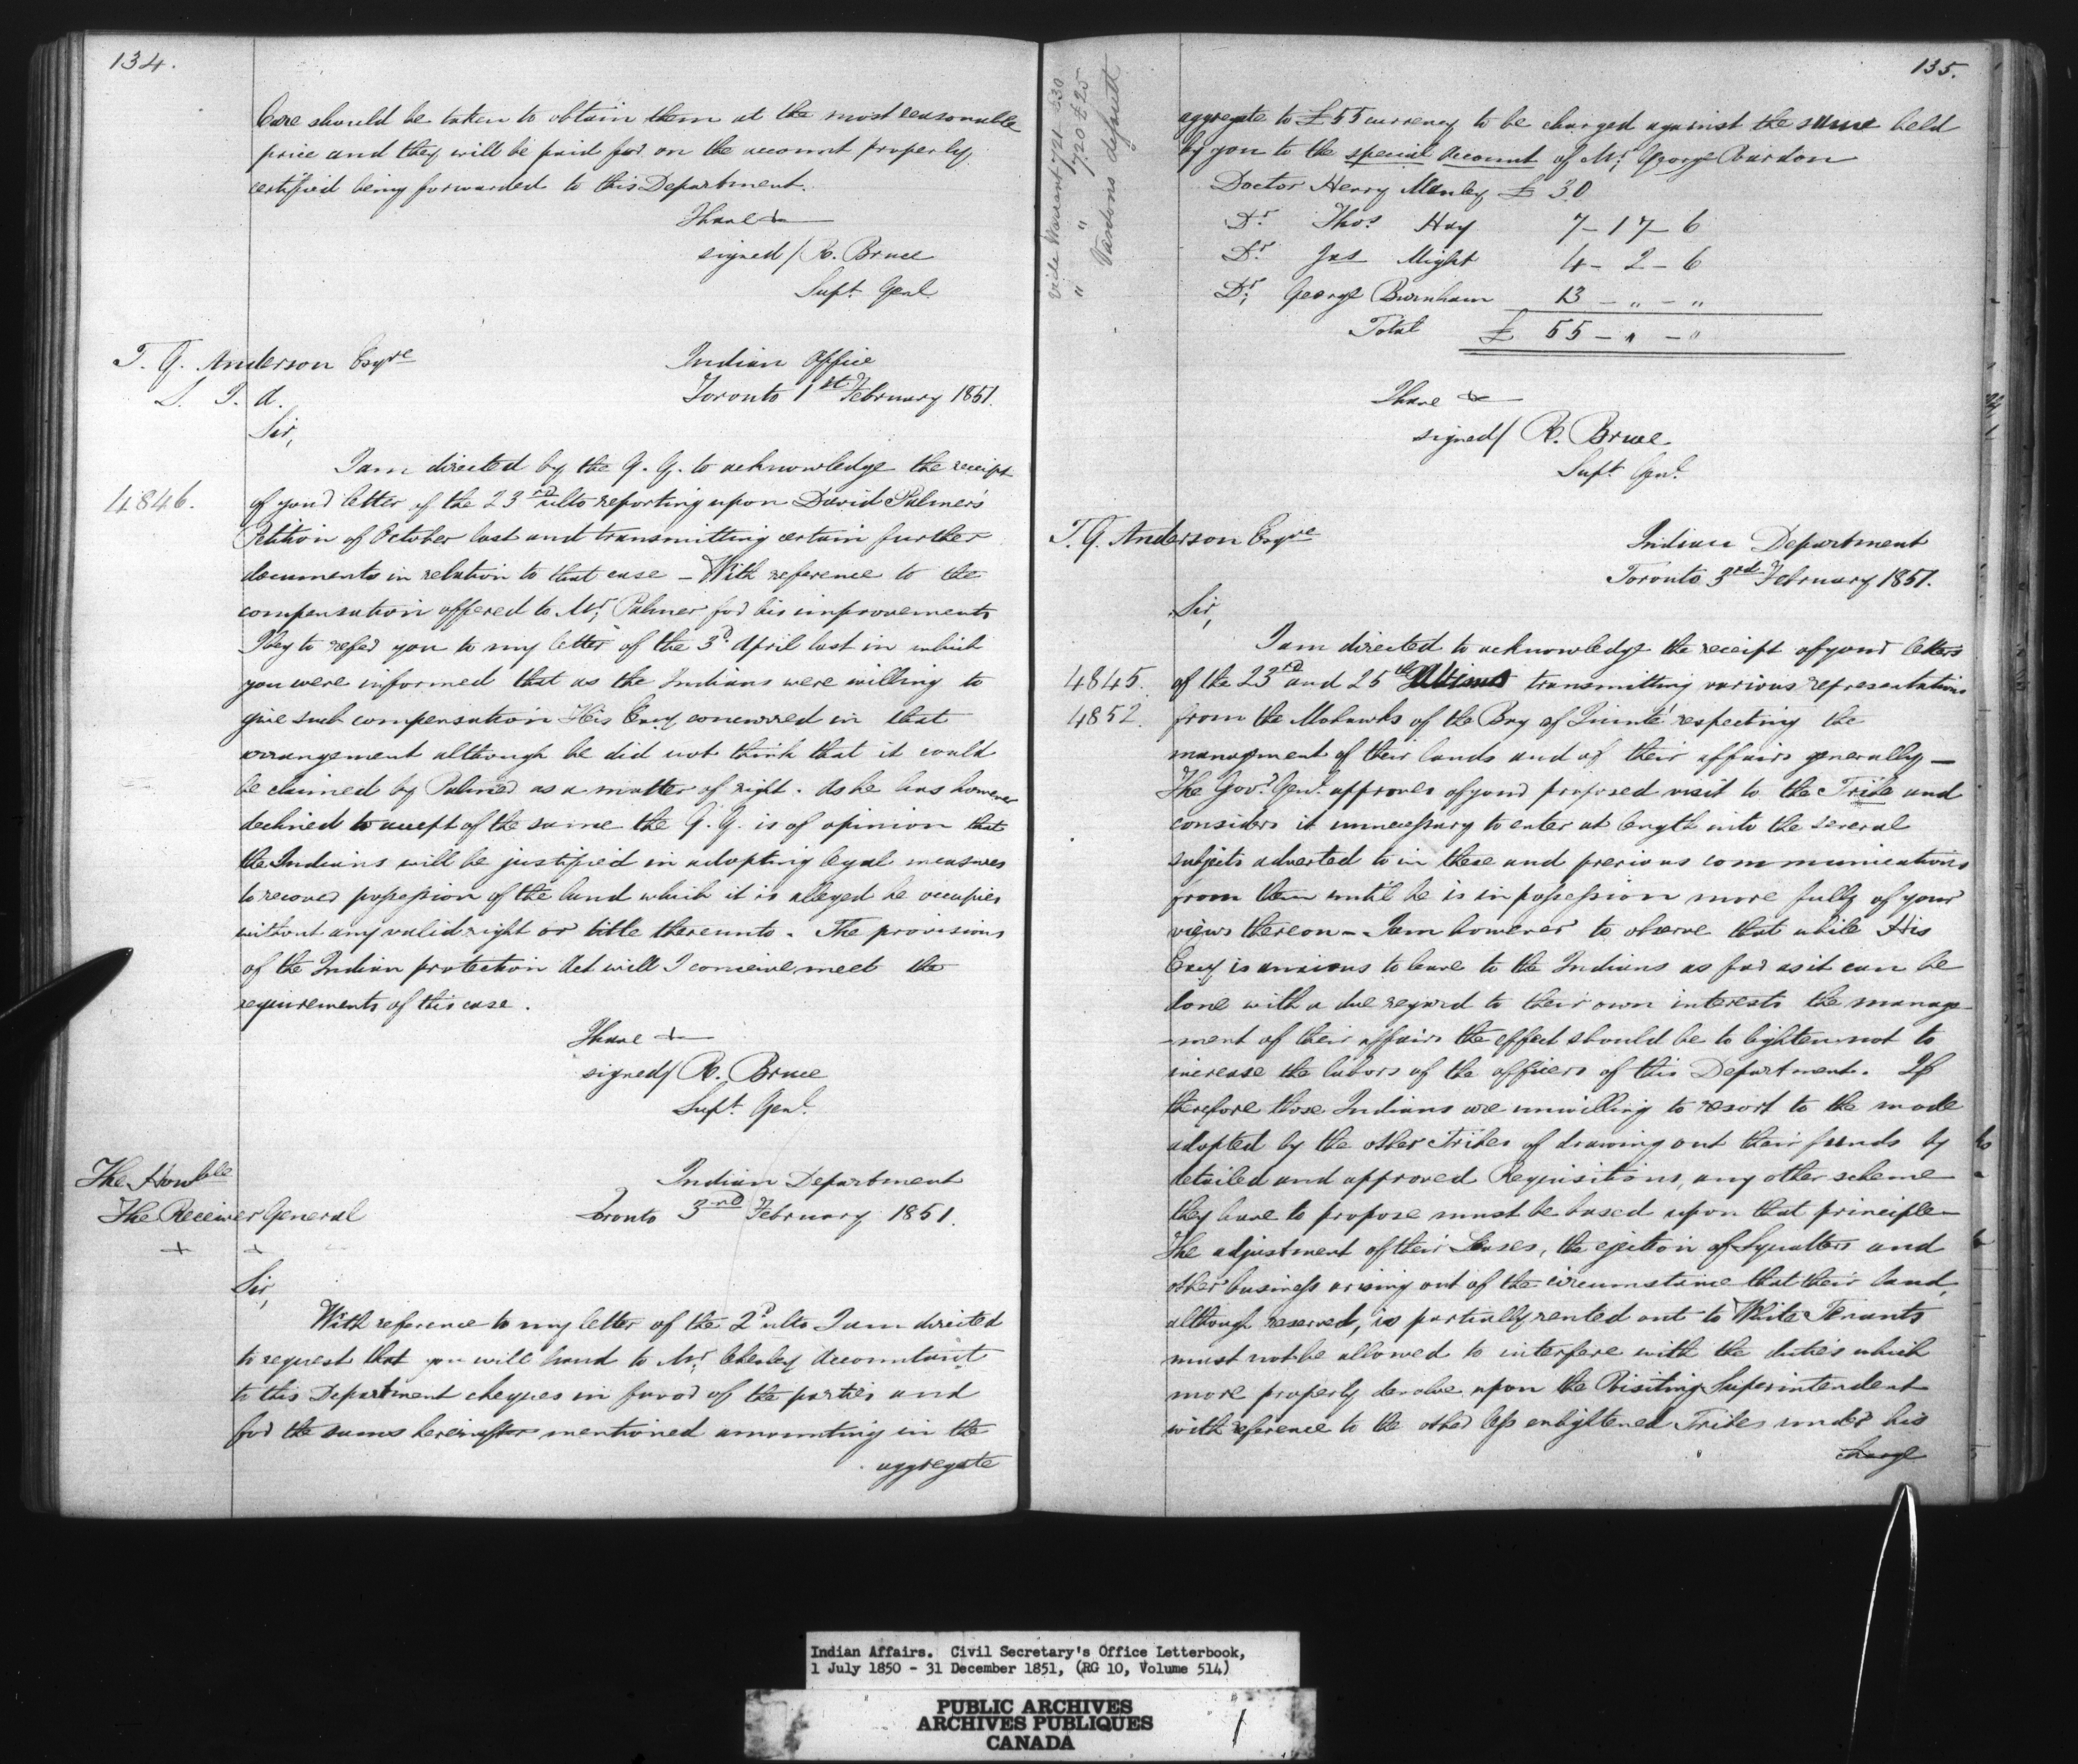 134.
Care should be taken to obtain them at the most reasonable
price and they will be paid for on the account properly
certified being forwarded to this Department.
I have &
signed/ R. Bruce
Supt Genl.
T. G. Anderson Esqre
S. I. A.
Indian Office
Toronto 1st February 1851.
Sir,
I am directed by the G. G. to acknowledge the receipt
4846.
of your letter of the 23rd ulto reporting upon David Palmer's
Petition of October last and transmitting certain further
documents in relation to that case – With reference to the
compensation offered to Mr. Palmer for his improvements
I beg to refer you to my letter of the 3d. April last in which
you were informed that as the Indians were willing to
give such compensation His Excy concurred in that
arrangement although he did not think that it could
be claimed by Palmer as a matter of right. As he has however
declined to accept of the same the G. G. is of opinion that
the Indians will be justified in adopting legal measures
to recover possession of the land which it is alleged he occupies
without any valid right or title thereunto. The provisions
of the Indian protection Act will I conceive meet the
requirements of this case.
I have &
signed/ R. Bruce
Supt. Genl.
The Honble
The Receiver General
+ +
Indian Department
Toronto 3rd February 1851.
Sir,
With reference to my letter of the 2d ulto I am directed
to request that you will hand to Mr. Chesley Accountant
to this Department cheques in favor of the parties and
for the sums hereinafter mentioned amounting in the
aggregate
135.
Vide Warrant 721 £30
" " 720 £25
Vardons default
aggregate to £55 currency to be charged against the same held
by you to the special account of Mr. George Vardon
Doctor Henry Manley £ 30
Dr. Thos. Hay 7-17-6
Dr. Jas Might 4-2-6
Dr. George Burnham 13 - " - "
Total £ 55 - " - "
I have &
signed/ R. Bruce
Supt. Genl.
T. G. Anderson Esqre
Indian Department
Toronto 3rd February 1851.
Sir,
I am directed to acknowledge the receipt of your letters
4845.
of the 23rd and 25th Ultimo transmitting various representations
4852.
from the Mohawks of the Bay of Quinté respecting the
managment of their lands and of their affairs generally –
The Govr. Genl. approves of your proposed visit to the Tribe and
considers it unnecessary to enter at length into the several
subjects adverted to in these and previous communications
from them until he is in possession more fully of your
views thereon – I am however to observe that while His
Excy is anxious to leave to the Indians as far as it can be
done with a due regard to their own interests the manage
-ment of their affairs the effect should be to lighten not to
increase the labors of the officers of this Department. If
therefore those Indians are unwilling to resort to the mode
adopted by the other Tribes of drawing out their funds by
detailed and approved Requisitions, any other scheme
they have to propose must be based upon that principle –
The adjustment of their Leases, the ejection of Squatters and
other business arising out of the circumstance that their land,
although reserved, is partially rented out to White Tenants
must not be allowed to interfere with the duties which
more properly devolve upon the Visiting Superintendent
with reference to the other less enlightened Tribes under his
charge
Indian Affairs. Civil Secretary's Office Letterbook,
1 July 1850 - 31 December 1851, (RG 10, Volume 514)
PUBLIC ARCHIVES
ARCHIVES PUBLIQUES
CANADA